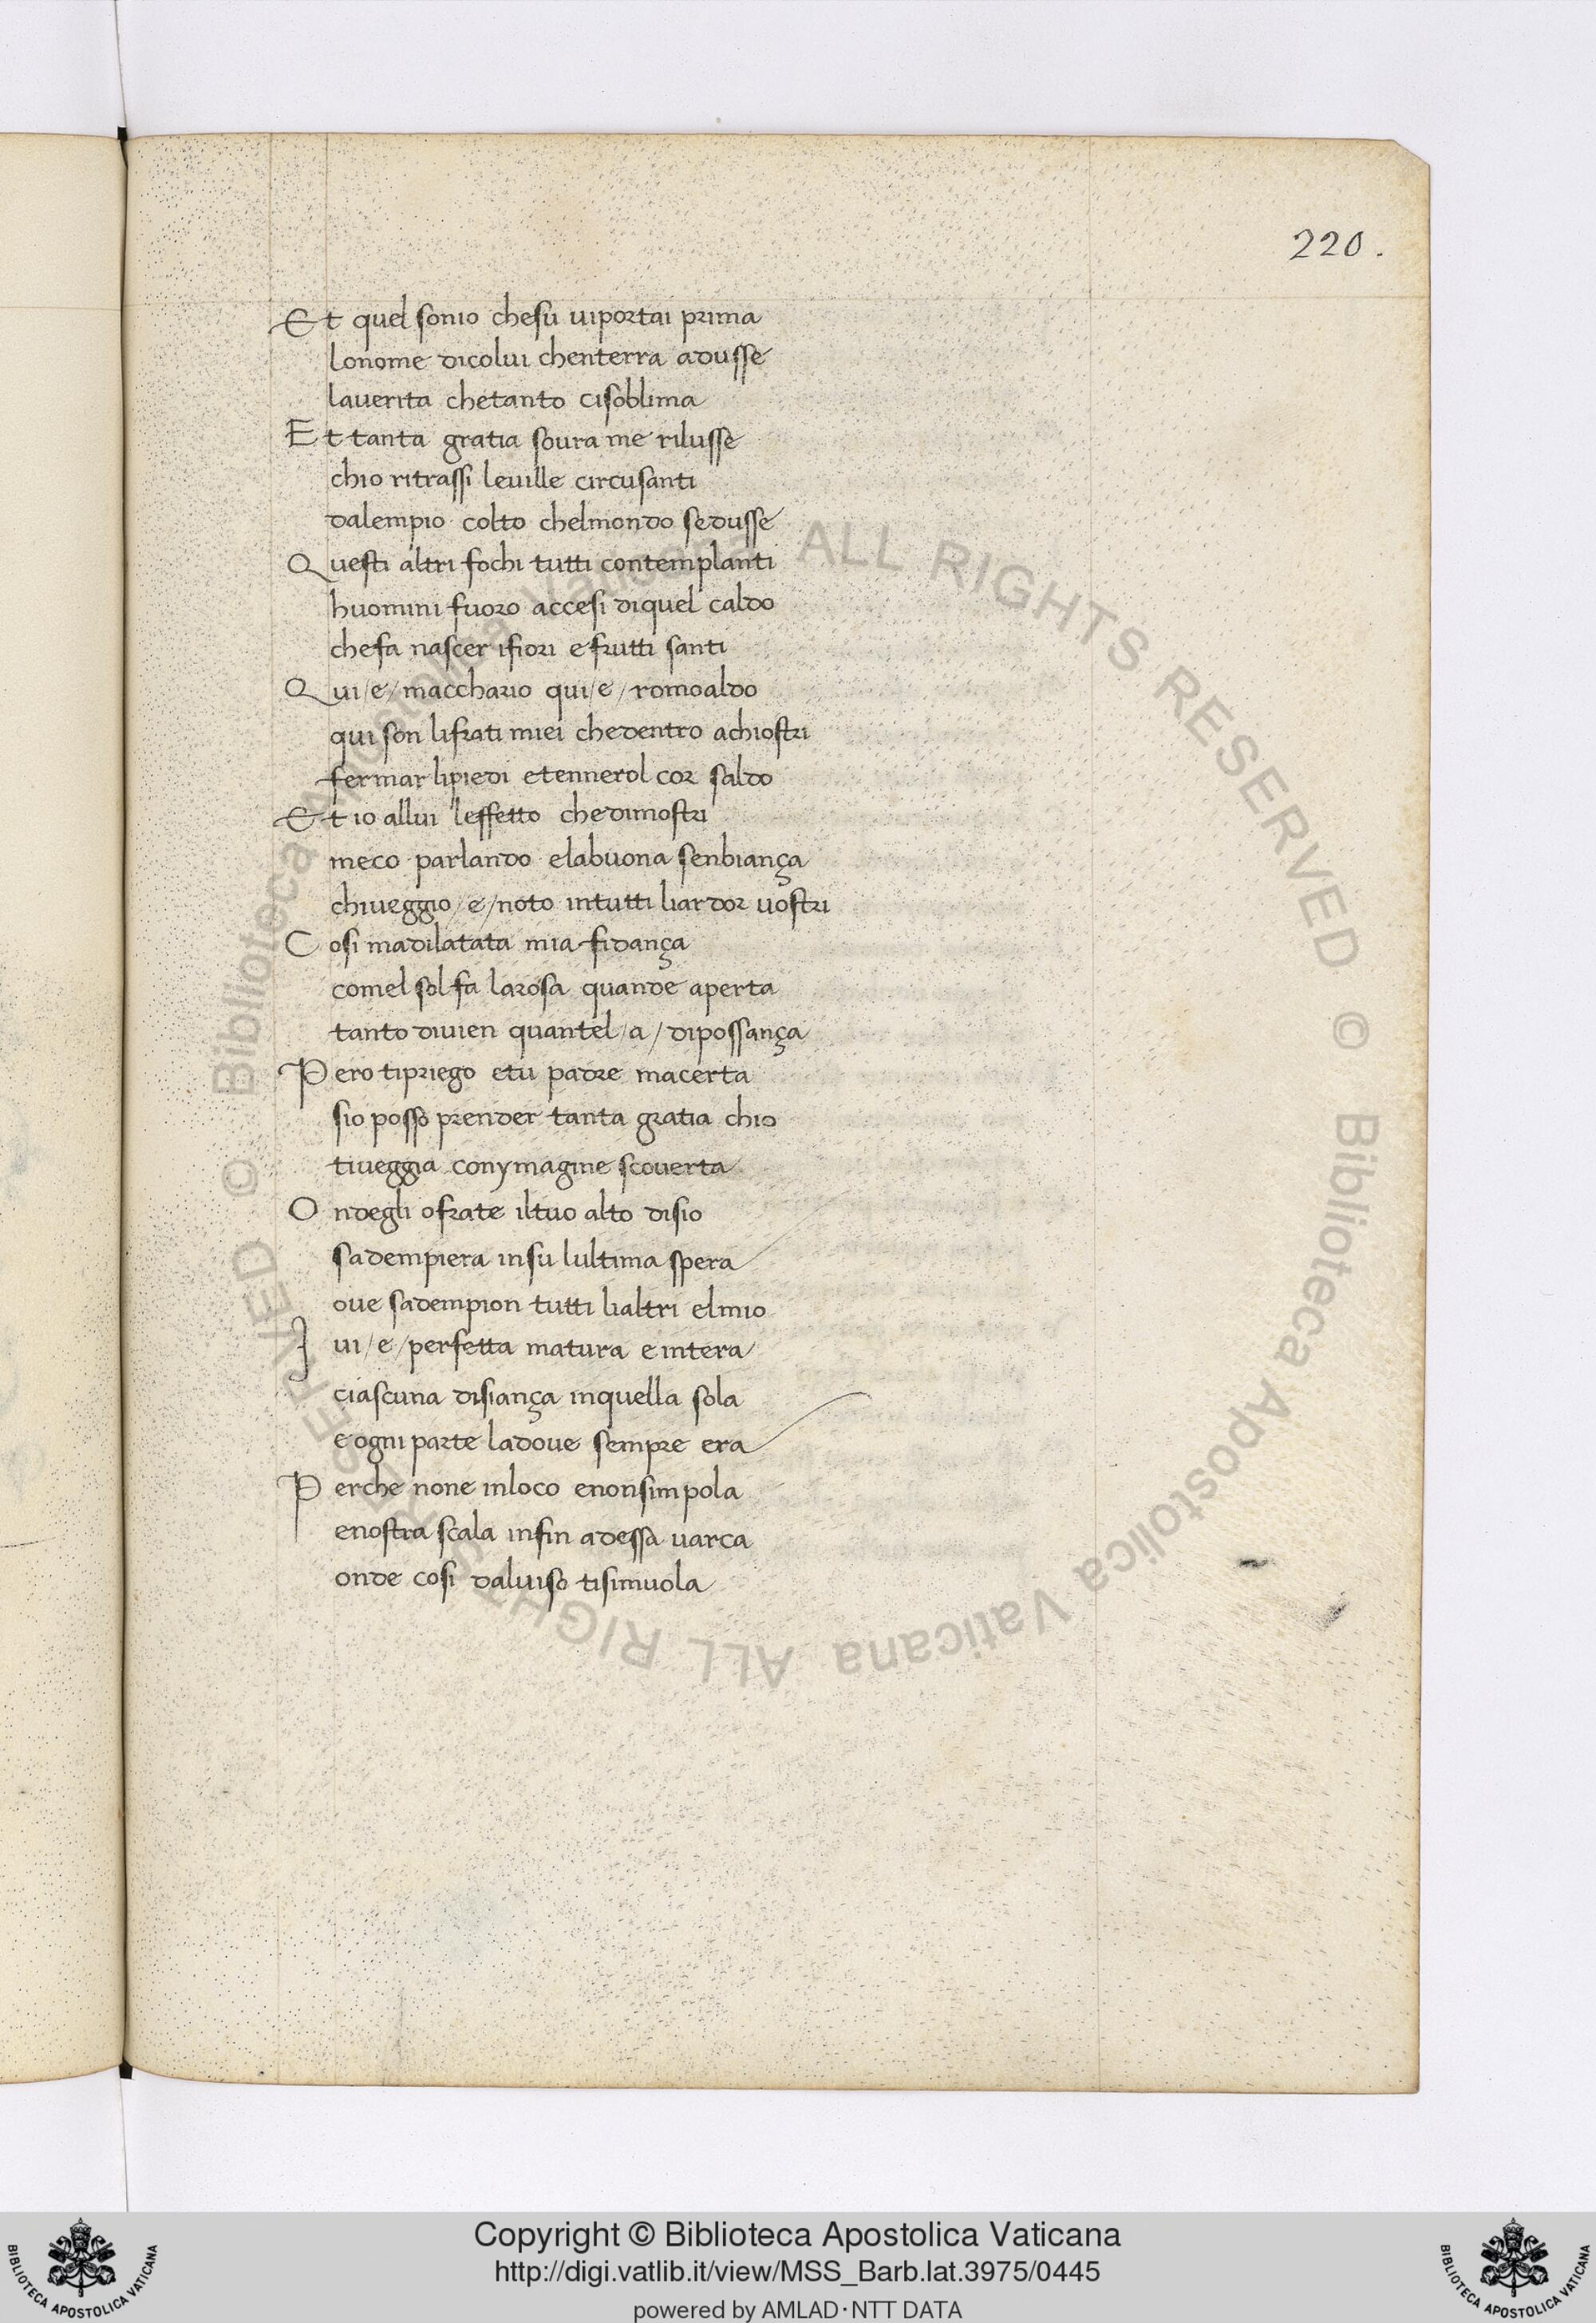 220.
Et quel sonio chesu uiportai prima
lonome dicolui chenterra adusse
lauerita chetanto cisoblima
Et tanta gratia soura me rilusse
chio ritrassi leuille circusanti
dalempio colto chelmondo sedusse
Questi altri fochi tutti contemplanti
huomini fuoro accesi diquel caldo
chefa nascer ifiori efrutti santi
Qui/e/macchario qui/e/romoaldo
qui son lifrati miei chedentro achiostri
fermar lipiedi etennerol cor saldo
Et io allui leffetto chedimostri
meco parlando elabuona senbiança
chiueggio/e/noto intutti liardor uostri
Cosi madilatata mia fidança
comel sol fa larosa quande aperta
tanto diuien quantel/a/dipossança
Pero tipriego etu padre macerta
sio posso prender tanta gratia chio
tiueggia conymagine scouerta
Ondegli ofrate iltuo alto disio
sadempiera insu lultima spera
oue sadempion tutti lialtri elmio
Iui/e/perfetta matura e intera
ciascuna disiança inquella sola
e ogni parte ladoue sempre era
Perche none inloco enonsimpola
enostra scala infin adessa uarca
onde cosi daluiso tisinuola
© Biblioteca Apostolica Vaticana ALL RIGHTS RESERVED © Biblioteca Apostolica Vaticana ALL RIGHTS RESERVED
Copyright © Biblioteca Apostolica Vaticana
http://digi.vatlib.it/view/MSS_Barb.lat.3975/0445
powered by AMLAD·NTT DATA
BIBLIOTECA APOSTOLICA VATICANA
BIBLIOTECA APOSTOLICA VATICANA